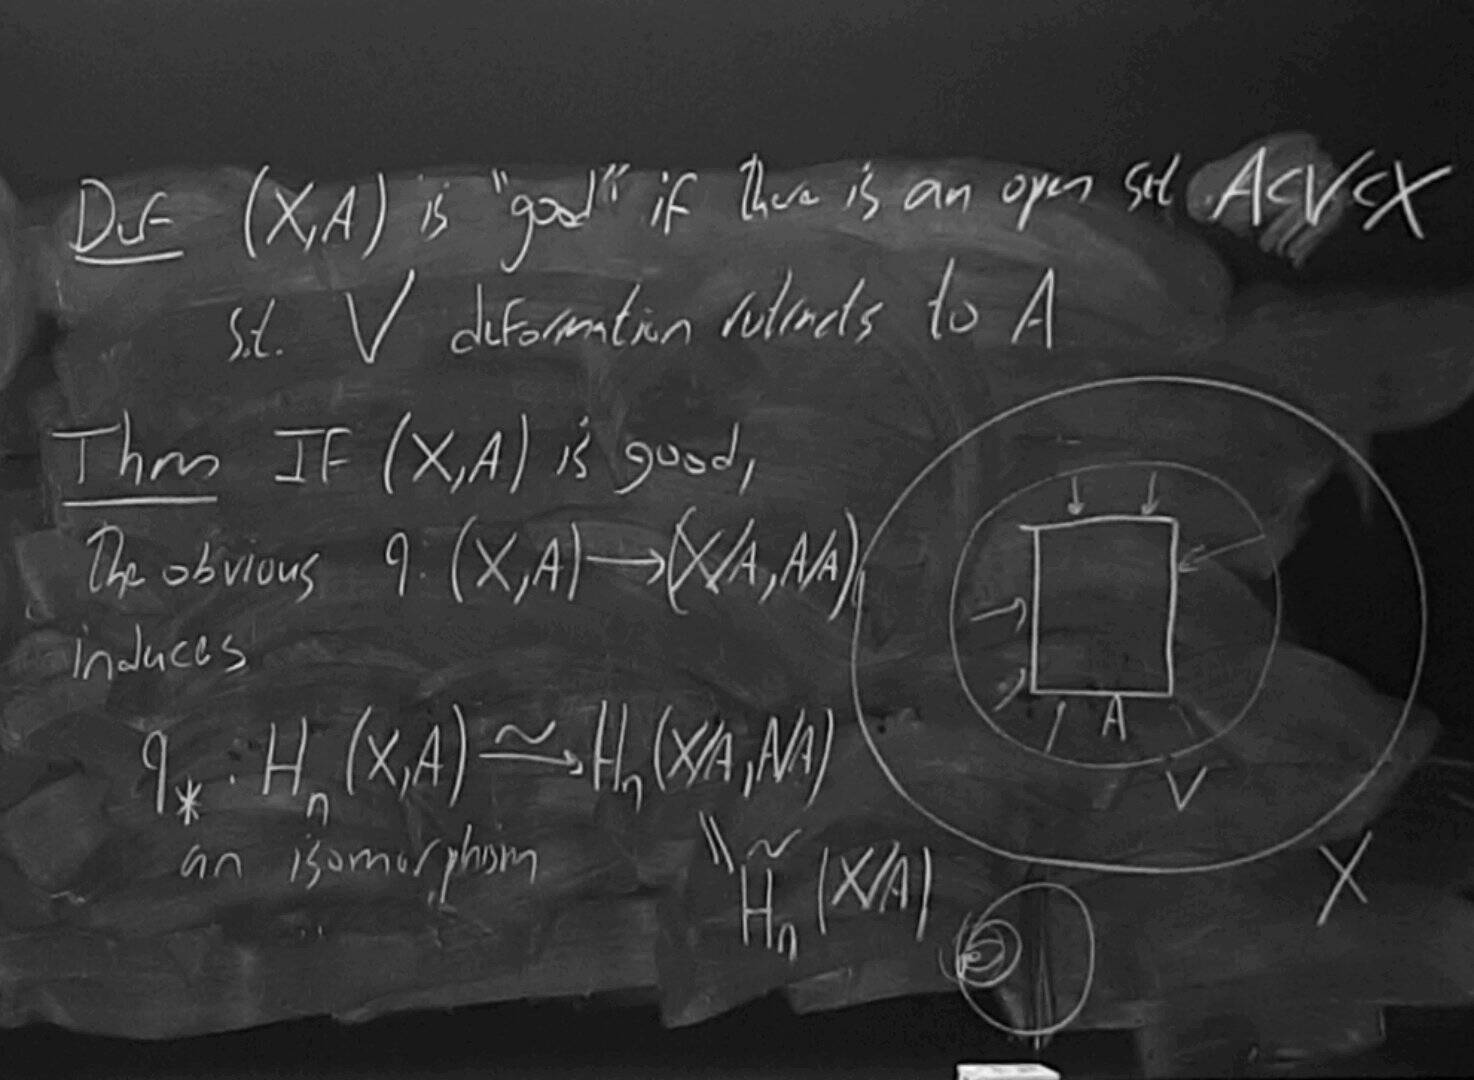 Def (X,A) is "good" if there is an open set A⊂V⊂X
s.t. V deformation retracts to A
Thm If (X,A) is good,
The obvious q: (X,A) → (X/A, A/A),
induces
q_*: H_n (X,A) ⥲ H_n (X/A, A/A)
an isomorphism
|| H̃_n (X/A)
A
V
X